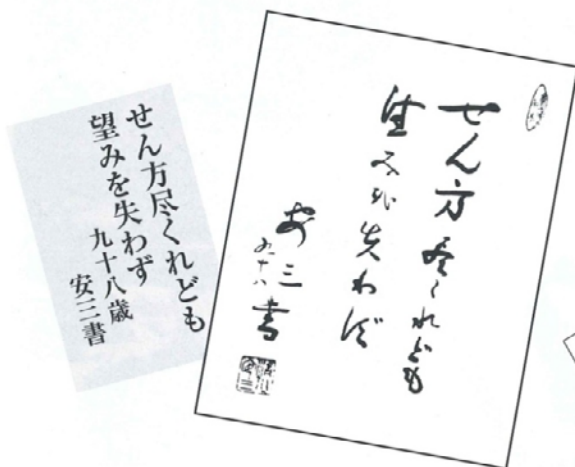 せん方尽くれども
望みを失わず
九十八歳
安三書
せん方尽くれども
望みを失わず
安三書
九十八